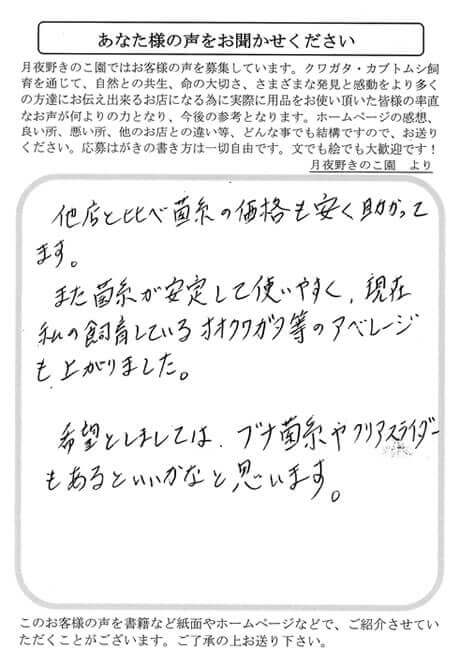 あなた様の声をお聞かせください
月夜野きのこ園ではお客様の声を募集しています。クワガタ・カブトムシ飼
育を通じて、自然との共生、命の大切さ、さまざまな発見と感動をより多く
の方達にお伝え出来るお店になる為に実際に用品をお使い頂いた皆様の率直
なお声が何よりの力となり、今後の参考となります。ホームページの感想、
良い所、悪い所、他のお店との違い等、どんな事でも結構ですので、お送り
ください。応募はがきの書き方は一切自由です。文でも絵でも大歓迎です！
月夜野きのこ園　より
他店と比べ菌糸の価格も安く助かって
ます。
また菌糸が安定して使いやすく、現在
私の飼育しているオオクワガタ等のアベレージ
も上がりました。
希望としましては、ブナ菌糸やクリアスライダー
もあるといいかなと思います。
このお客様の声を書籍など紙面やホームページなどで、ご紹介させてい
ただくことがございます。ご了承の上お送り下さい。